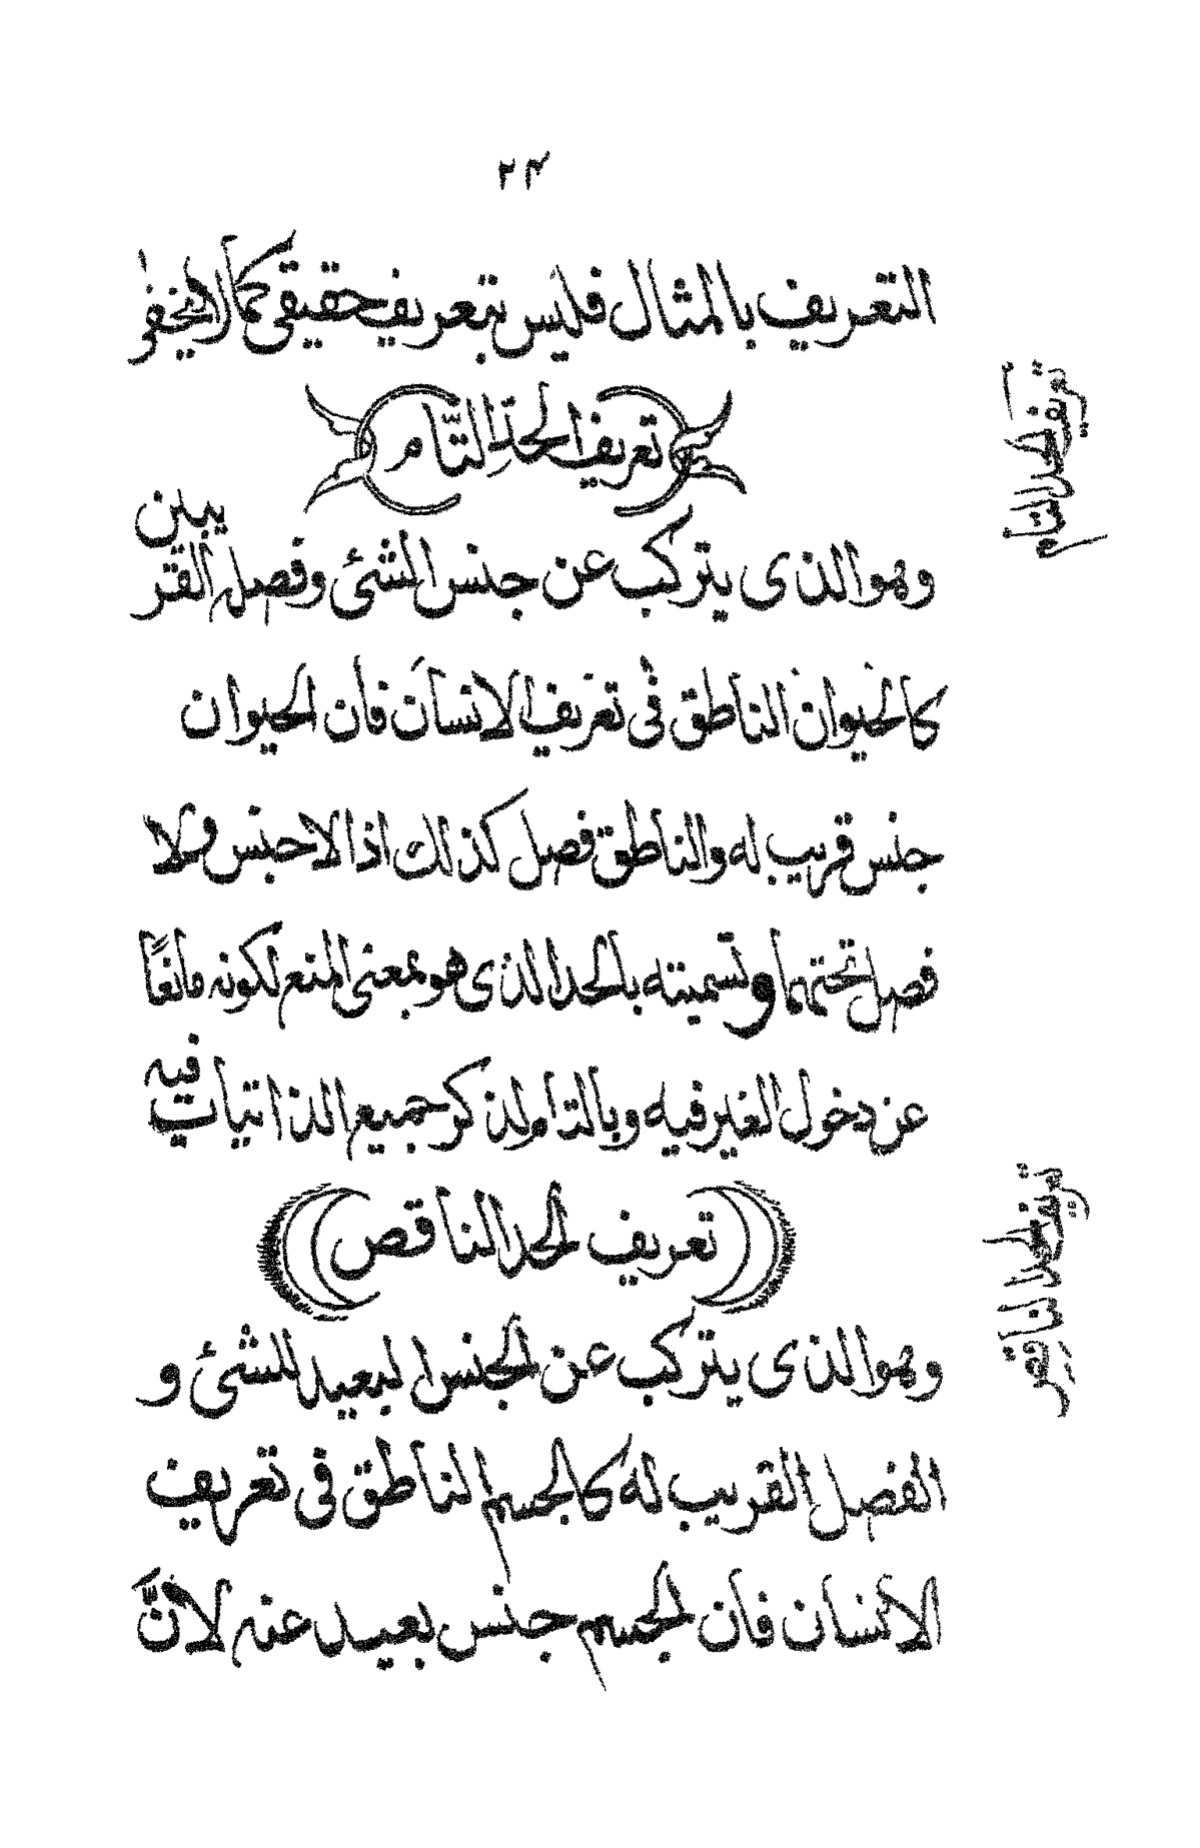 ٢٤
التعريف بالمثال فليس بتعريف حقيقى كما لا يخفى
تعريف الحد التّام
تعريف الحد التام
وهو الذى يتركب عن جنس الشئ وفصل القريبين
كالحيوان الناطق فى تعريف الانسان فان الحيوان
جنس قريب له والناطق فصل كذلك اذا لا جنس ولا
فصل تحتهما وتسميته بالحد الذى هو بمعنى المنع لكونه مانعًا
عن دخول الغير فيه وبالتام لذكر جميع الذاتيات فيه
تعريف الحد الناقص
تعريف الحد الناقص
وهو الذى يتركب عن الجنس لبعيد للشئ و
الفصل القريب له كالجسم الناطق فى تعريف
الانسان فان الجسم جنس بعيد عنه لانَّ